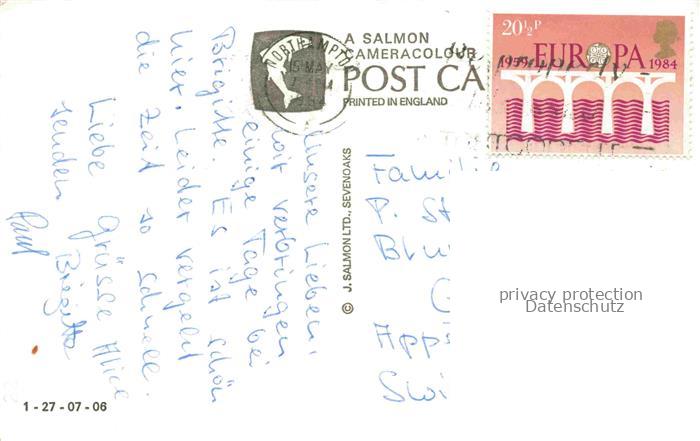 A SALMON
CAMERACOLOUR
POST CA
PRINTED IN ENGLAND
NORTHAMPTO
15 MAY
20½P
EUROPA
1959 1984
Unsere Lieben,
wir verbringen
einige Tage bei
Brigitte. Es ist schön
hier. Leider vergeht
die Zeit so schnell.
Liebe Grüsse Alice
senden Brigitte
Paul
© J. SALMON LTD., SEVENOAKS
Famili
P. St
Blu
G
App
Swi
privacy protection
Datenschutz
1 - 27 - 07 - 06